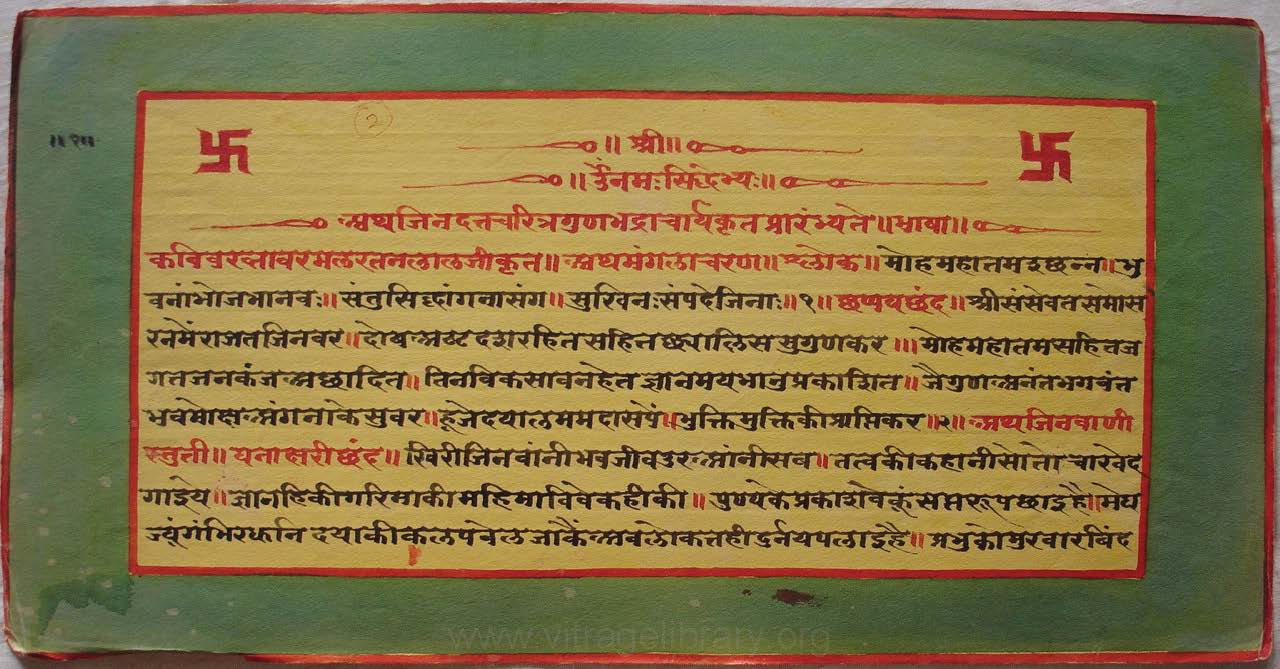 ॥ १॥
२
॥ श्री॥
॥ ॐनमःसिद्धेभ्यः॥
अथजिनदत्तचरित्रगुणभद्राचार्यकृतप्रारंभ्यते॥भाषा॥
कविवरवखतावरमलरतनलालजीकृत॥अथमंगलाचरण॥श्लोक॥मोहमहातमइछन्न॥भु
वनांभोजभानवः॥संतुसिद्धांगनासंग॥सुखिनःसंपदेजिनाः॥१॥छप्पयछंद॥श्रीसंसेवतसमोस
रनमेंराजतजिनवर॥दोषअष्टदशरहितसहितछ्यालिससुगुणकर॥॥मोहमहातमसहितज
गतजनकंजअछादित॥तिनविकसावनहेतज्ञानमयभानुप्रकाशित॥जैगुणअनंतभगवंत
भवमोक्षअंगनाकेसुवर॥हूजेदयालममदासपें॥भुक्तिमुक्तिकीआप्तिकर॥२॥अथजिनवाणी
स्तुती॥घनाक्षरीछंद॥खिरीजिनवांनीभवजीवउरआंनीसव॥तत्वकीकहानीसोतोचारवेद
गाइये॥ज्ञानहिकीगरिमाकीमहिमाविवेकहीकी॥पुण्यकेप्रकाशवेकूंसप्तरूपछाइहै॥मेघ
ज्यूंगंभिरधुनि दयाकीकलपवेलजाकैंअवलोकतहीदुर्नयपलाइहै॥प्रभुकोमुखारविंद
www.vitragelibrary.org